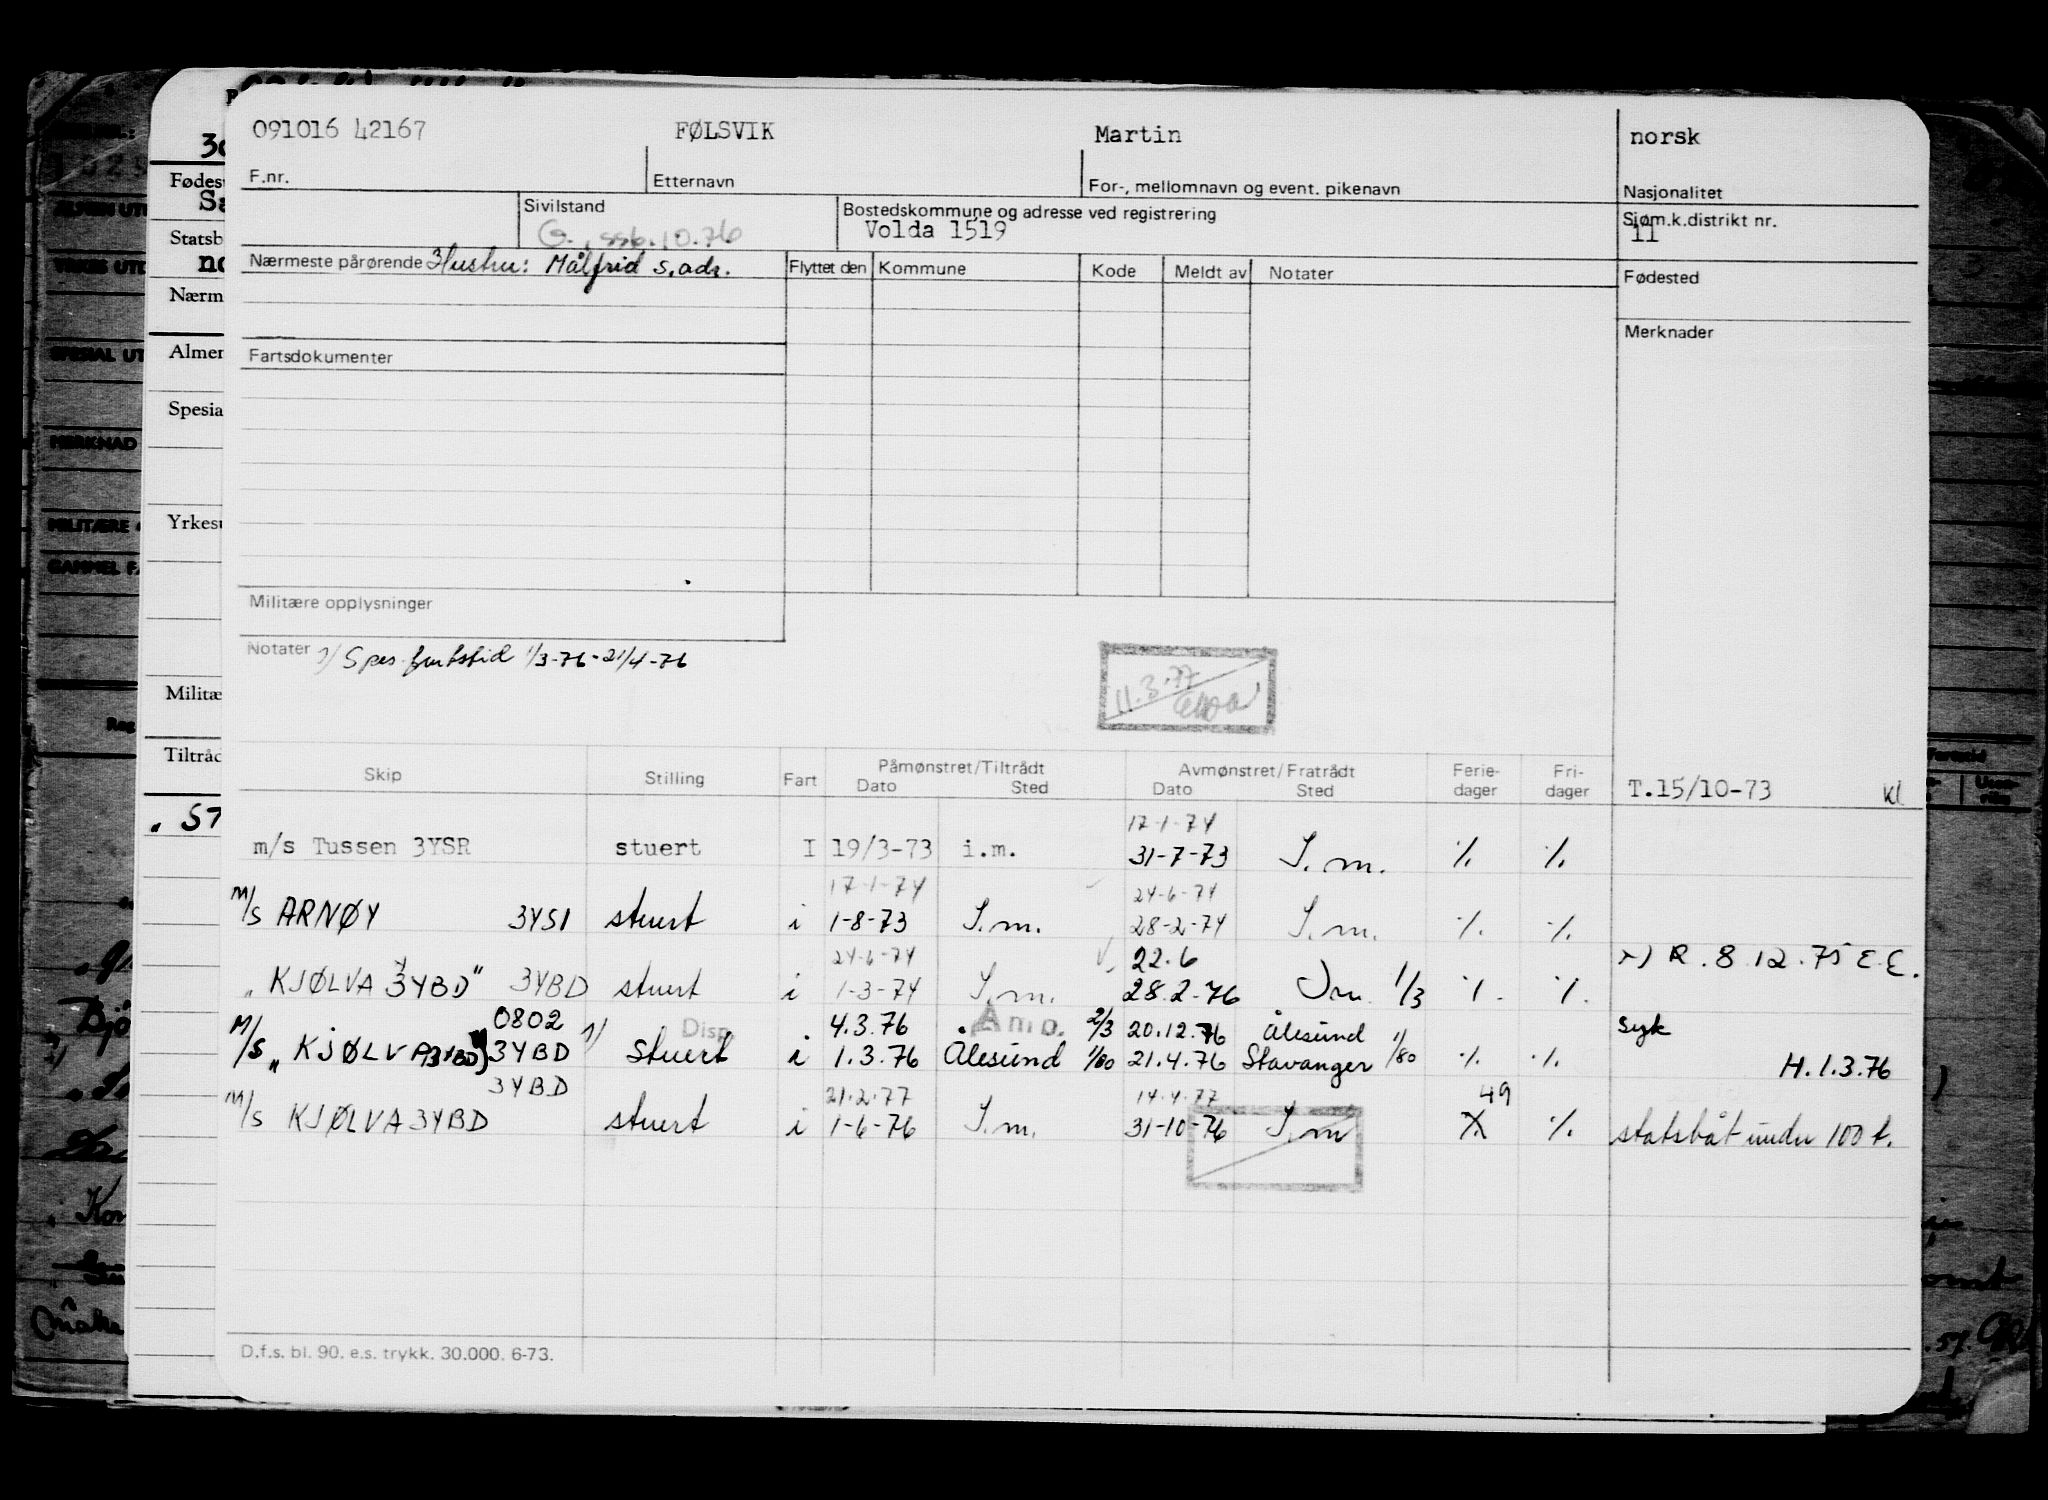 091016 42167 FØLSVIK Martin norsk
F.nr. Etternavn For-, mellomnavn og event. pikenavn Nasjonalitet
Sivilstand Bostedskommune og adresse ved registrering Sjøm.k.distrikt nr.
G., ssb.10.76 Volda 1519 11
Nærmeste pårørende Hustru: Målfrid s.adr. Flyttet den Kommune Kode Meldt av Notater Fødested
Merknader
Fartsdokumenter
Militære opplysninger
Notater 1/ Spes.fartstid 1/3-76-21/4-76
11.3.77
Skip Stilling Fart Påmønstret/Tiltrådt Avmønstret/Fratrådt Ferie- Fri-
Dato Sted Dato Sted dager dager T.15/10-73 kl
17-1-74
m/s Tussen 3YSR stuert I 19/3-73 i.m. 31-7-73 I.m. ./. ./.
17-1-74 24-6-74
M/S ARNØY 3YSI stuert i 1-8-73 I.m. 28-2-74 I.m. ./. ./.
24-6-74 22.6 R.8.12.75 E.E.
"KJØLVA 3YBD" 3YBD stuert i 1-3-74 I.m. 28.2.76 I.m. 1/3 ./. ./.
0802 Disp 4.3.76 Amo. 2/3 20.12.76 Ålesund syk
M/S "KJØLVA (3YBD)" 3YBD 1/ Stuert i 1.3.76 Ålesund 1/80 21.4.76 Stavanger 1/80 ./. ./. H.1.3.76
3YBD 21.2.77 14.4.77 49
M/S KJØLVA 3YBD stuert i 1-6-76 I.m. 31-10-76 I.m ./. ./. statsbåt under 100 t.
D.f.s. bl. 90. e.s. trykk. 30.000. 6-73.
Fødest
Statsb
Nærm
Almen
Spesia
Yrkesu
Militæ
Tiltråd